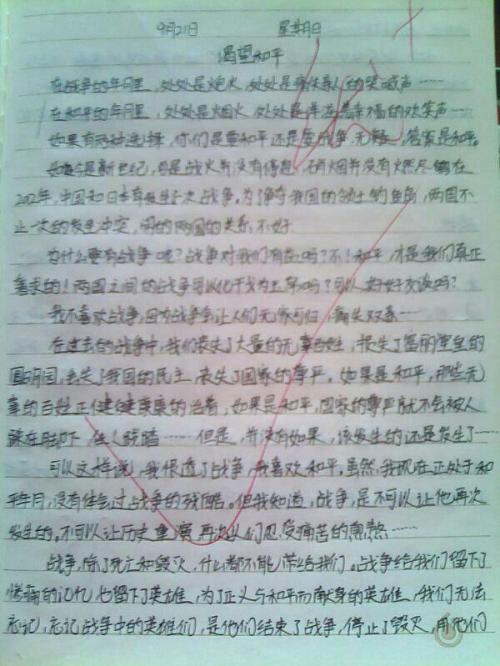 9月21日 星期日
渴望和平
在战争的年月里，处处是炮火，处处是痛失亲人的哭喊声……
在和平的年月里，处处是烟火，处处是幸福的欢笑声……
如果有两种选择，你们是要和平还是要战争，无疑，答案是和平。
如今是新世纪，但是战火并没有停息，硝烟并没有燃尽，在
2012年，中国和日本有发生一次战争。为了争夺我国的领土钓鱼岛，两国不
止一次的发生冲突，闹的两国的关系不好
为什么要有战争呢？战争对我们有益吗？不！和平，才是我们真正
需求的！两国之间的战争可以化干戈为玉帛吗？可以好好交谈吗？
我不喜欢战争，因为战争会让人们无家可归，痛失双亲……
在过去的战争中，我们丧失了大量的无辜百姓，损失了富丽堂皇的
圆明园，丢失了我国的民主，丧失了国家的尊严。如果是和平，那些无
辜的百姓正健健康康的活着，如果是和平，国家的尊严就不会被人
踩在脚下，任人践踏……但是，并没有如果，该发生的还是发生了……
可以这样说，我恨透了战争，我喜欢和平，虽然，我现在正处于和
平年月，没有体会过战争的残酷。但我知道，战争，是不可以让他再次
发生的，不可以让历史重演，再次让人们忍受痛苦的煎熬……
战争，除了死亡和毁灭，什么都不能带给我们。战争给我们留下了
惨痛的记忆，也留下了英雄，为了正义与和平而献身的英雄，我们无法
忘记，忘记战争中的英雄们，是他们结束了战争，停止了毁灭，用他们